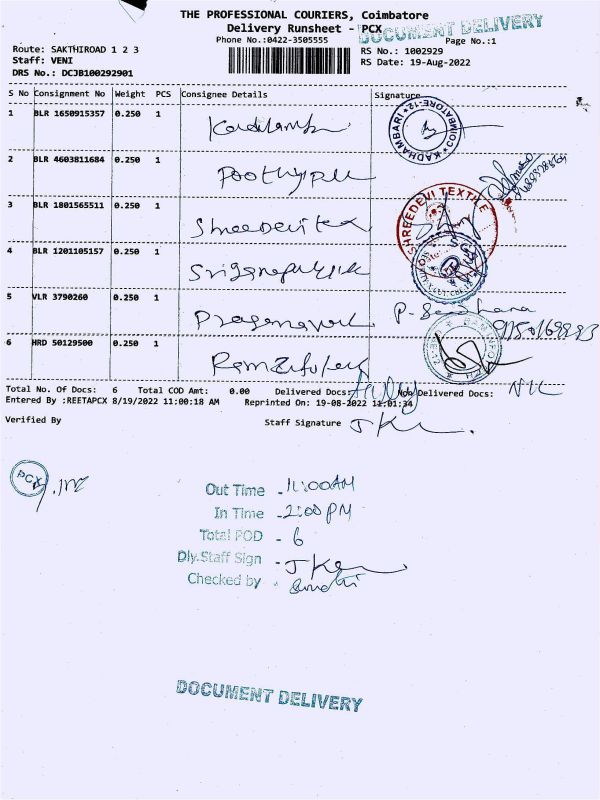 THE PROFESSIONAL COURIERS, Coimbatore
Delivery Runsheet - PCX
DOCUMENT DELIVERY
Phone No.:0422-3505555 Page No.:1
Route: SAKTHIROAD 1 2 3 RS No.: 1002929
Staff: VENI RS Date: 19-Aug-2022
DRS No.: DCJB100292901
S No Consignment No Weight PCS Consignee Details Signature
1 BLR 1650915357 0.250 1
KADHAMBARI COIMBATORE-12
2 BLR 4603811684 0.250 1
3 BLR 1801565511 0.250 1 Shreedevi tex
SHREEDEVI TEXTILE
4 BLR 1201105157 0.250 1
5 VLR 3790260 0.250 1
6 HRD 50129500 0.250 1
Total No. Of Docs: 6 Total COD Amt: 0.00 Delivered Docs: Non Delivered Docs: NIL
Entered By :REETAPCX 8/19/2022 11:00:18 AM Reprinted On: 19-08-2022 11:01:34
Verified By Staff Signature
PCX
Out Time - 11:00AM
In Time - 2:00 PM
Total POD - 6
Dly.Staff Sign -
Checked by -
DOCUMENT DELIVERY